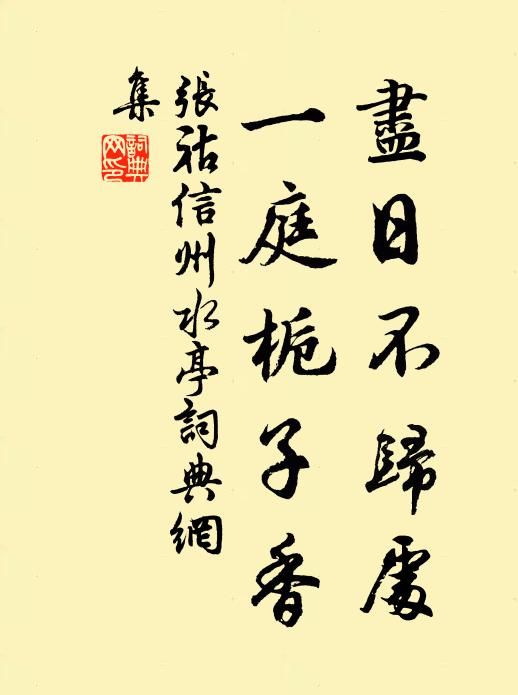 盡日不歸處
一庭栀子香
張祜信州水亭詞典網
集
詞典
网印